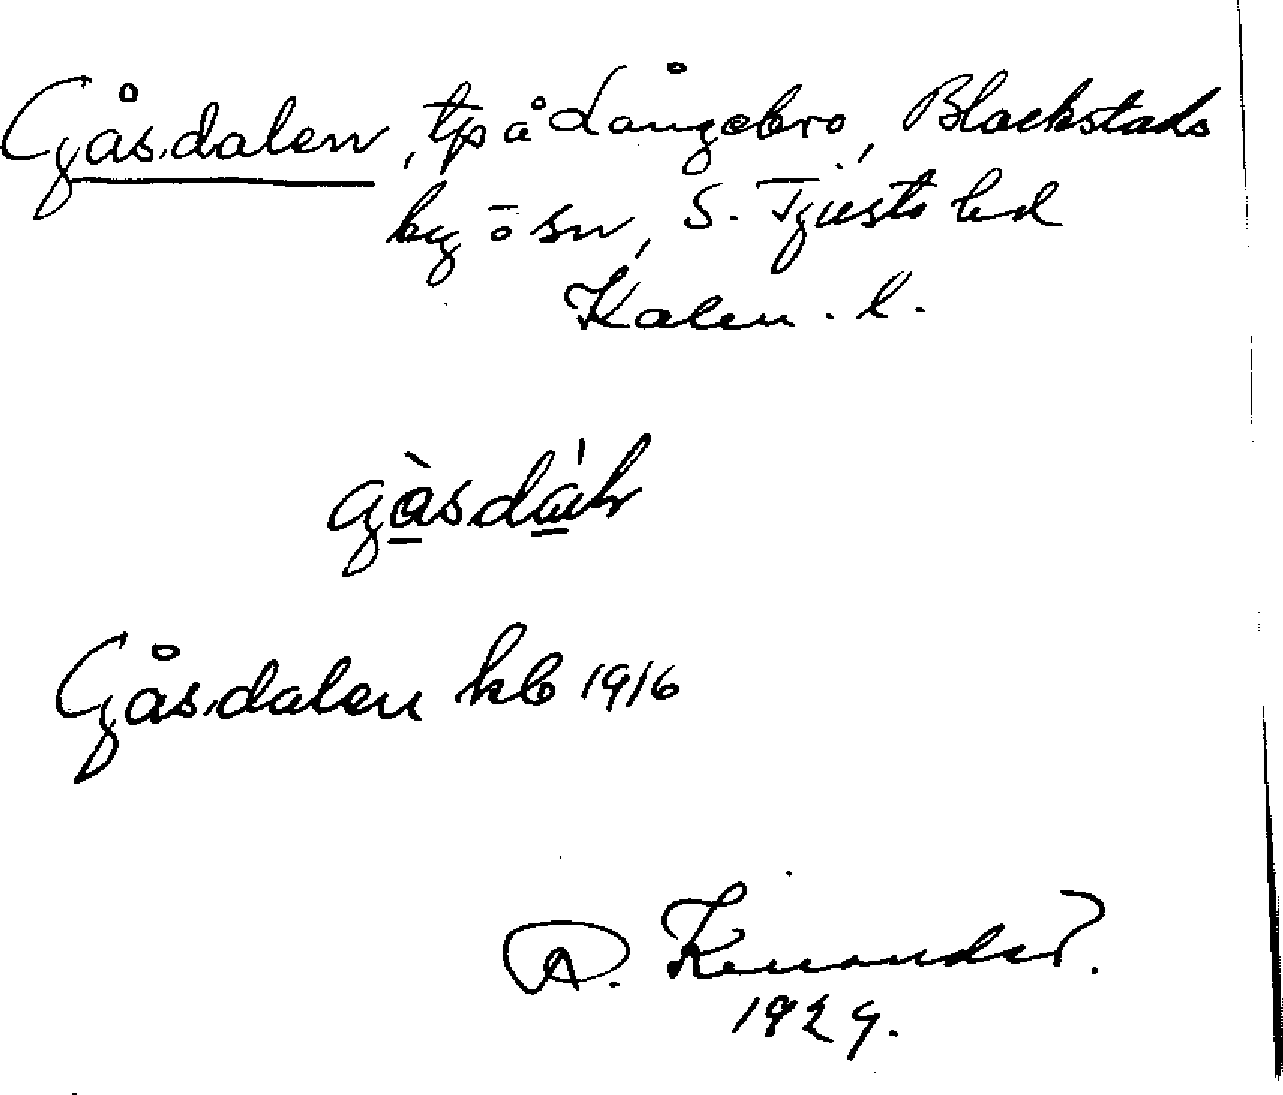 Gåsdalen, tp å Långebro, Blackstads
by o sn, S. Tjusts hd
Kalm. l.
gàsdál
Gåsdalen kb 1916
A. Kinander.
1929.